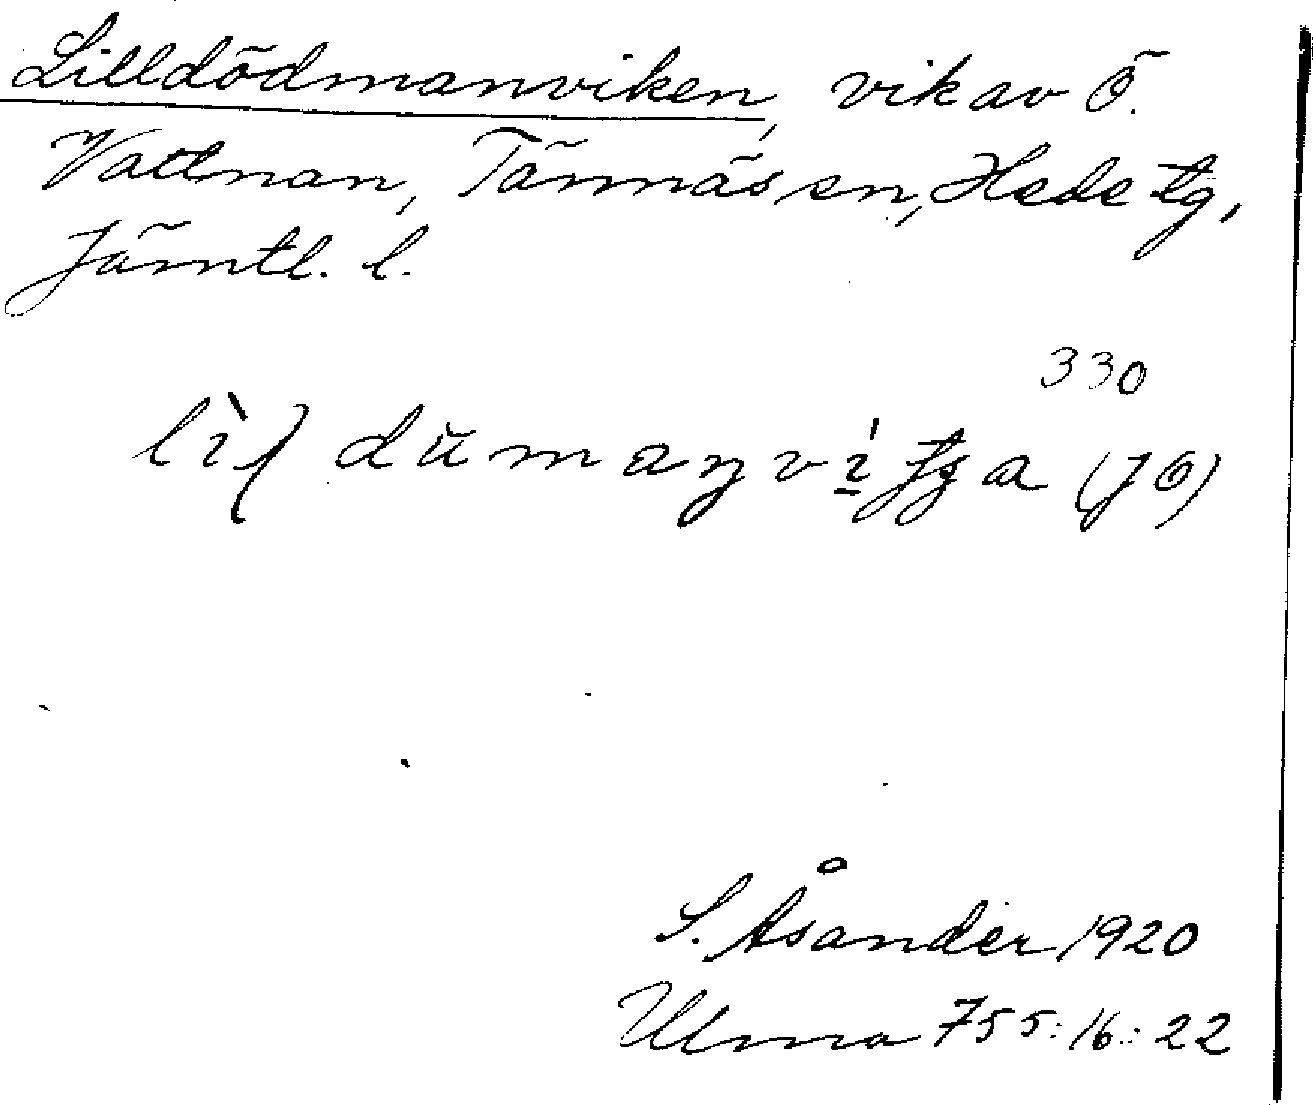 Lilldödmanviken, vik av Ö.
Vattnan, Tännäs sn, Hede tg,
Jämtl. l.
330
(JÖ)
S. Åsander 1920
Ulma 755:16:22